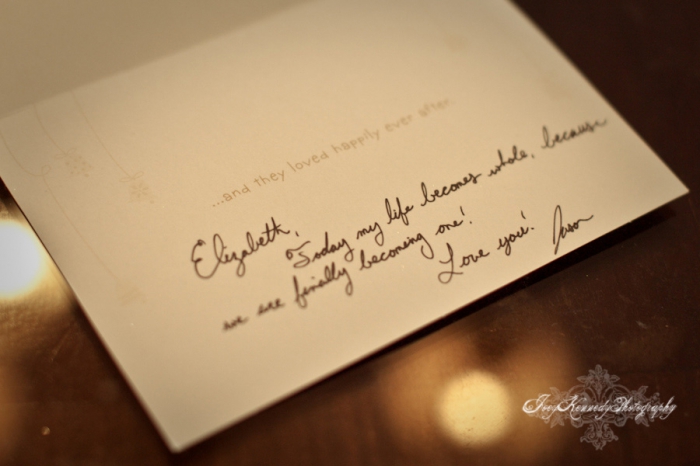 ...and they loved happily ever after.
Elizabeth,
Today my life becomes whole, because
we are finally becoming one!
Love you!
Jason
IveyKennedyPhotography